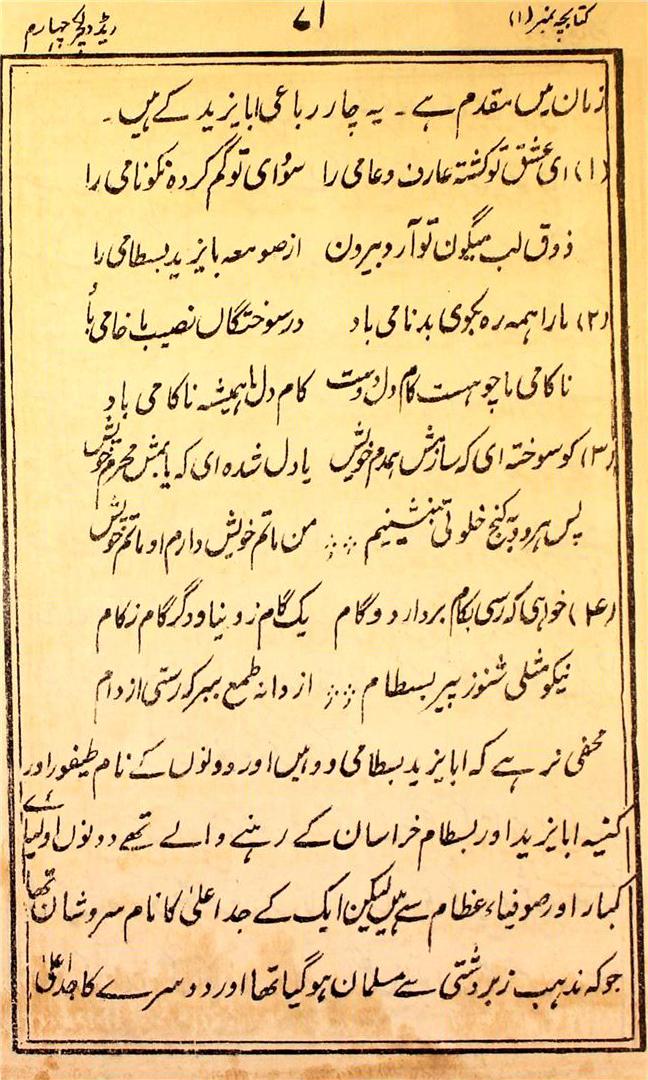 کتابچہ نمبر (۱) ۷۱ ریڈ ولچر چہارم
زمان میں مقدم ہے ۔ یہ چار رباعی ابایزید کے ہیں ۔
(۱) ای عشق تو کشتہ عارف و عامی را سودای تو گم کردہ نکونامی را
ذوق لب میگون تو آرد بیرون از صومعہ بایزید بسطامی را
(۲) مارا ہمہ رہ بکوی بدنامی باد در سوختگان نصیب ما خامی باد
ناکامی ما چو ہست کام دل دوست کام دل ما ہمیشہ ناکامی باد
(۳) کو سوختہ ای کہ سازمش ہمدم خویش یا دل شدہ ای کہ یابمش محرم خویش
پس ہر دو بہ کنج خلوتی بنشینیم من ماتم خویش دارم او ماتم خویش
(۴) خواہی کہ رسی بکام بردار دو گام یک گام ز دنیا و دگر گام ز کام
نیکو مثلی شنو ز پیر بسطام از دانہ طمع ببر کہ رستی از دام
مخفی نر ہے کہ ابایزید بسطامی دو ہیں اور دونوں کے نام طیفور اور
کنیہ ابایزید اور بسطام خراسان کے رہنے والے تھے دونوں اولیائے
کبار اور صوفیاء عظام سے ہیں لیکن ایک کے جد اعلیٰ کا نام سروشان تھا
جو کہ مذہب زبردشتی سے مسلمان ہو گیا تھا اور دوسرے کا جد اعلیٰ